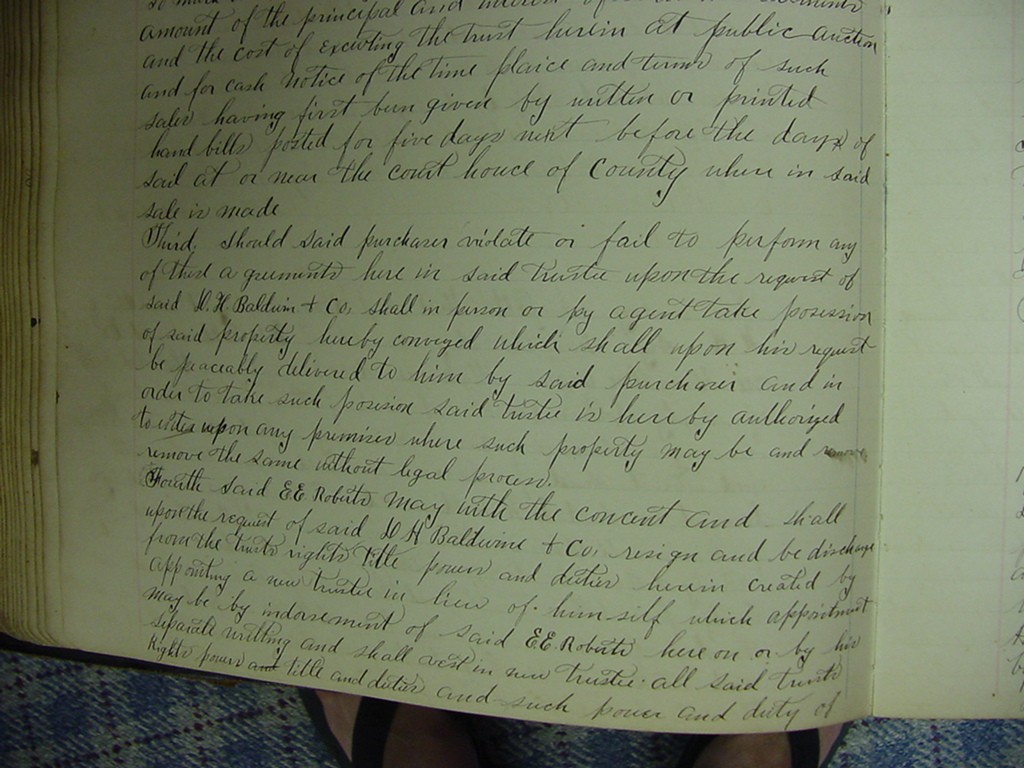 amount of the principal and interest of
and the cost of executing the trust herein at public auction
and for cash notice of the time plaice and terms of such
sales having first been given by written or printed
hand bills posted for five days next before the days of
sail at or near the court houce of County where in said
sale is made
Third. Should said purchaser violate or fail to perform any
of these agreements here in said trustee upon the request of
said D. H. Baldwin + Co, shall in person or by agent take posession
of said property hereby conveyed which shall upon his request
be peaceably delivered to him by said purchaser and in
order to take such posision said trustee is hereby authorized
to enter upon any premises where such property may be and remove
remove the same without legal process.
Fourth said E E Roberts may with the concent and shall
upon the request of said D H Baldwine + Co, resign and be discharge
from the trusts rights title powers and duties herein created by
appointing a new trustee in lieu of himself which appointment
may be by indorsement of said E E. Roberts here on or by his
separate writting and shall vest in new trustee all said trusts
Rights powers and title and duties and such power and duty of